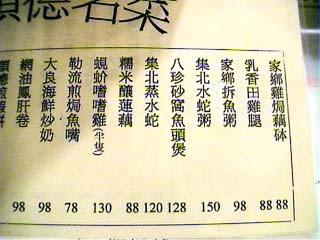 順德名菜
家鄉雞焗藕砵 88
乳香田雞腿 88
家鄉拆魚粥 98
集北水蛇粥 150
八珍砂窩魚頭煲 128
集北蒸水蛇 120
糯米釀蓮藕 88
蜆蚧嗜嗜雞(半隻) 130
勒流煎焗魚嘴 78
大良海鮮炒奶 98
網油鳳肝卷 98
順德煎